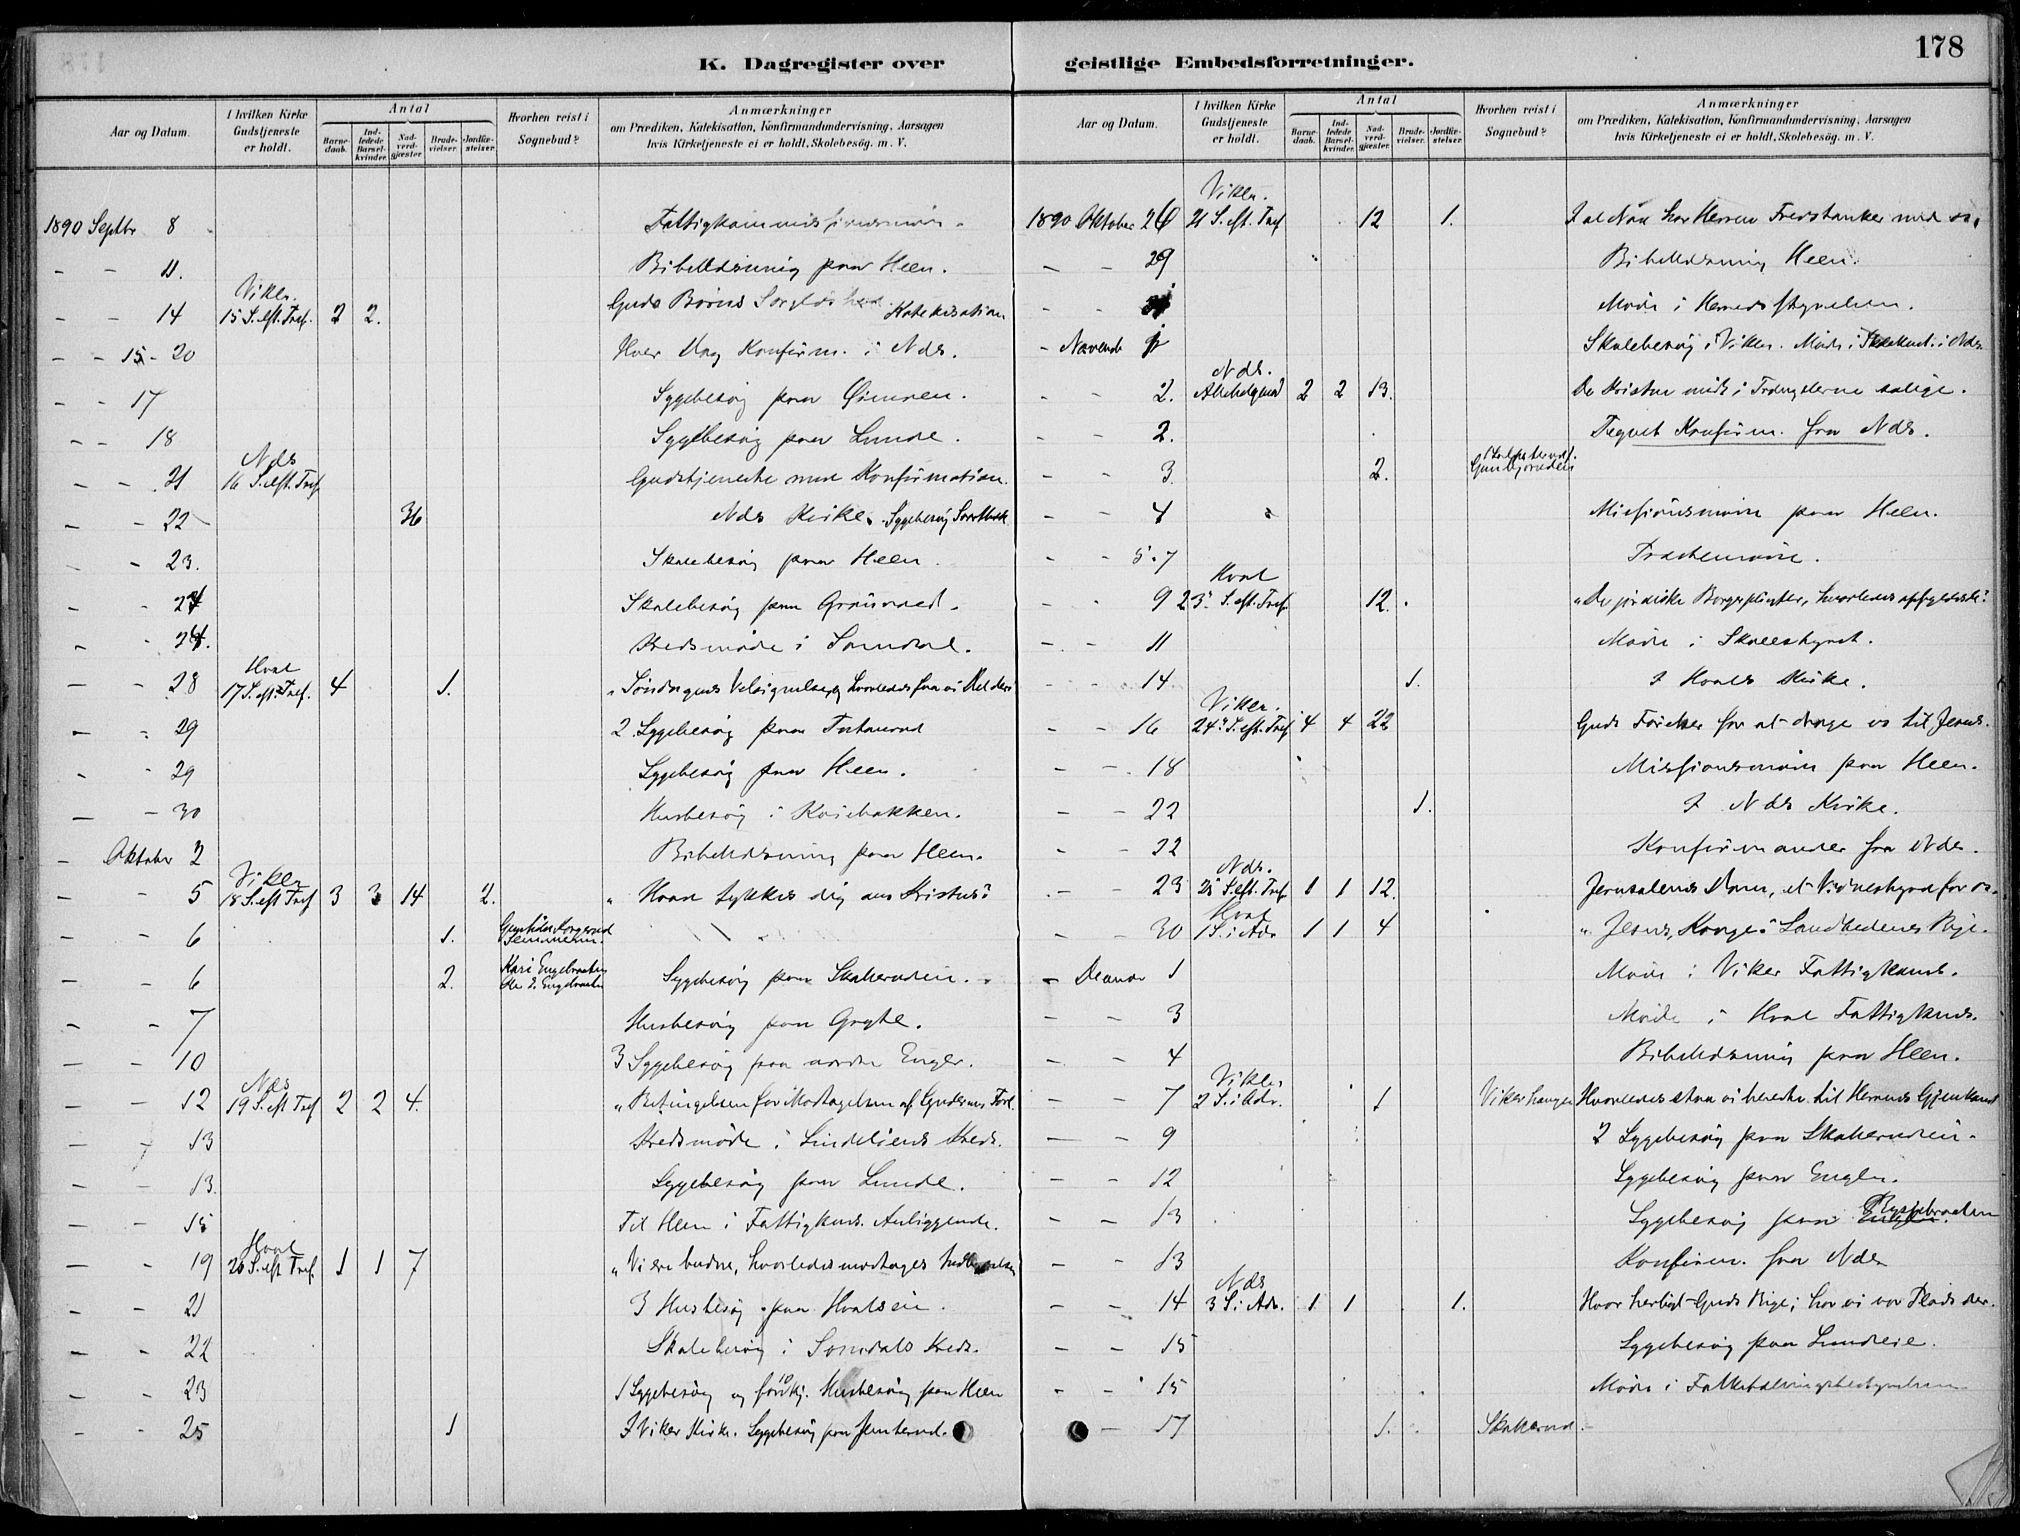 178
K. Dagregister over geistlige Embedsforretninger.
Aar og Datum.
I hvilken Kirke Gudstjeneste er holdt.
Antal
Barnedaab.
Indledede Barselkvinder.
Nadverdgjæster.
Brudevielser.
Jordfæstelser.
Hvorhen reist i Sognebud?
Anmærkninger
om Prædiken, Katekisation, Konfirmandundervisning, Aarsagen
hvis Kirketjeneste ei er holdt, Skolebesög. m. V.
1890 Septbr 8
- - 11. Bibellæsning paa Heen.
- - 14 Viker. 15 S. eft. Tref. 2 2. Guds Børns Katekisation
- - 15-20 Hver Dag Konfirm. i Nds.
- - 17 Sygebesøg paa
- - 18 Sygebesøg paa Lunde.
- - 21 Nds 16 S. eft. Tref Gudstjeneste med Konfirmation.
- - 22 36 Nds Kirke. Sygebesøg
- - 23. Skolebesøg paa Heen.
- - 24 Skolebesøg paa
- - 24. Kredsmøde i Somdal.
- - 28 Hval 17 S. eft. Tref. 4 1. Søndagens Velsignelse, hvorledes faa vi Del deri
- - 29 2 Sygebesøg paa
- - 29 Sygebesøg paa Heen.
- - 30 Husbesøg i
- Oktober 2 Bibellæsning paa Heen.
- - 5 Viker 18 S. eft Tref 3 3 14 2. " Hvad tykkes dig om Kristus?
- - 6 1.
- - 6 2. Kari Engebraaten Sygebesøg paa
- - 7 Husbesøg paa Gryte.
- - 10 3 Sygebesøg paa nordre Enger.
- - 12 Nds 19 S. eft Tref 2 2 4. " Betingelsen for Modtagelsen af Syndernes Forl.
- - 13 Kredsmøde i Lindelien Kreds.
- - 13. Sygebesøg paa Lunde.
- - 15 Til Heen i Fattigkms. Anliggende.
- - 19 Hval 20 S. eft Tref. 1 1 7 " Vi ere budne, hvorledes modtages
- - 21 3 Husbesøg paa Hvalseie.
- - 22 Skolebesøg i Somdals Kreds.
- - 23 1 Sygebesøg og 10 Husbesøg paa Heen
- - 25 1 I Viker Kirke. Sygebesøg paa
Aar og Datum.
I hvilken Kirke Gudstjeneste er holdt.
Antal
Barnedaab.
Indledede Barselkvinder.
Nadverdgjæster.
Brudevielser.
Jordfæstelser.
Hvorhen reist i Sognebud?
Anmærkninger
om Prædiken, Katekisation, Konfirmandundervisning, Aarsagen
hvis Kirketjeneste ei er holdt, Skolebesög. m. V.
1890 Oktober 26 Viker. 21 S. eft. Tref 12 1. I al Nød har Herren Fredstanker med os,
- - 29 Bibellæsning Heen.
- - Møde i Herredsstyrelsen.
- Novemb 1 Skolebesøg i Viker. Møde i
- - 2. Nds. Allehelgensd 2 2 13. De Kristne midt i Trængslerne salige.
- - 2. Tegnet Konfirm. fra Nds.
- - 3. 2.
- - 4 Missionsmøde paa Heen.
- - 5-7
- - 9 Hval 23. S. eft. Tref. 12. " De jordiske Borgerpligter, hvorledes opfyldes de?
- - 11 Møde i Skolestyret.
- - 14 1. I Hvals Kirke.
- - 16 Viker. 24. S. eft. Tref 4 4 22 Guds for at drage os til Jesus.
- - 18 Missionsmøde paa Heen.
- - 22 1. I Nds Kirke.
- - 22 Konfirmander fra Nds.
- - 23 Nds. 25 S. eft. Tref 1 1 12. Jerusalems Dom, et Vidnesbyrd for os.
- - 30 Hval 1 S. i Adv 1 1 4 " Jesus, Konge i Sandhedens Rige.
- Decemb 1 Møde i Viker Fattigkomm.
- - 3 Møde i Hval Fattigkms.
- - 4 Bibellæsning paa Heen.
- - 7 Viker 2 S. i Adv. 1 Vikerhaugen Hvorledes staa vi beredte til Herrens Gjenkomst
- - 9 2 Sygebesøg paa
- - 12 Sygebesøg paa Enger.
- - 13 Sygebesøg paa
- - 13 Konfirm. fra Nds
- - 14 Nds 3 S. i Adv. 1 1 1. Hvor herligt Guds Rige; har vi vor Plads der.
- - 15 Sygebesøg paa Lundeie.
- - 15 Møde i
- - 17 1.